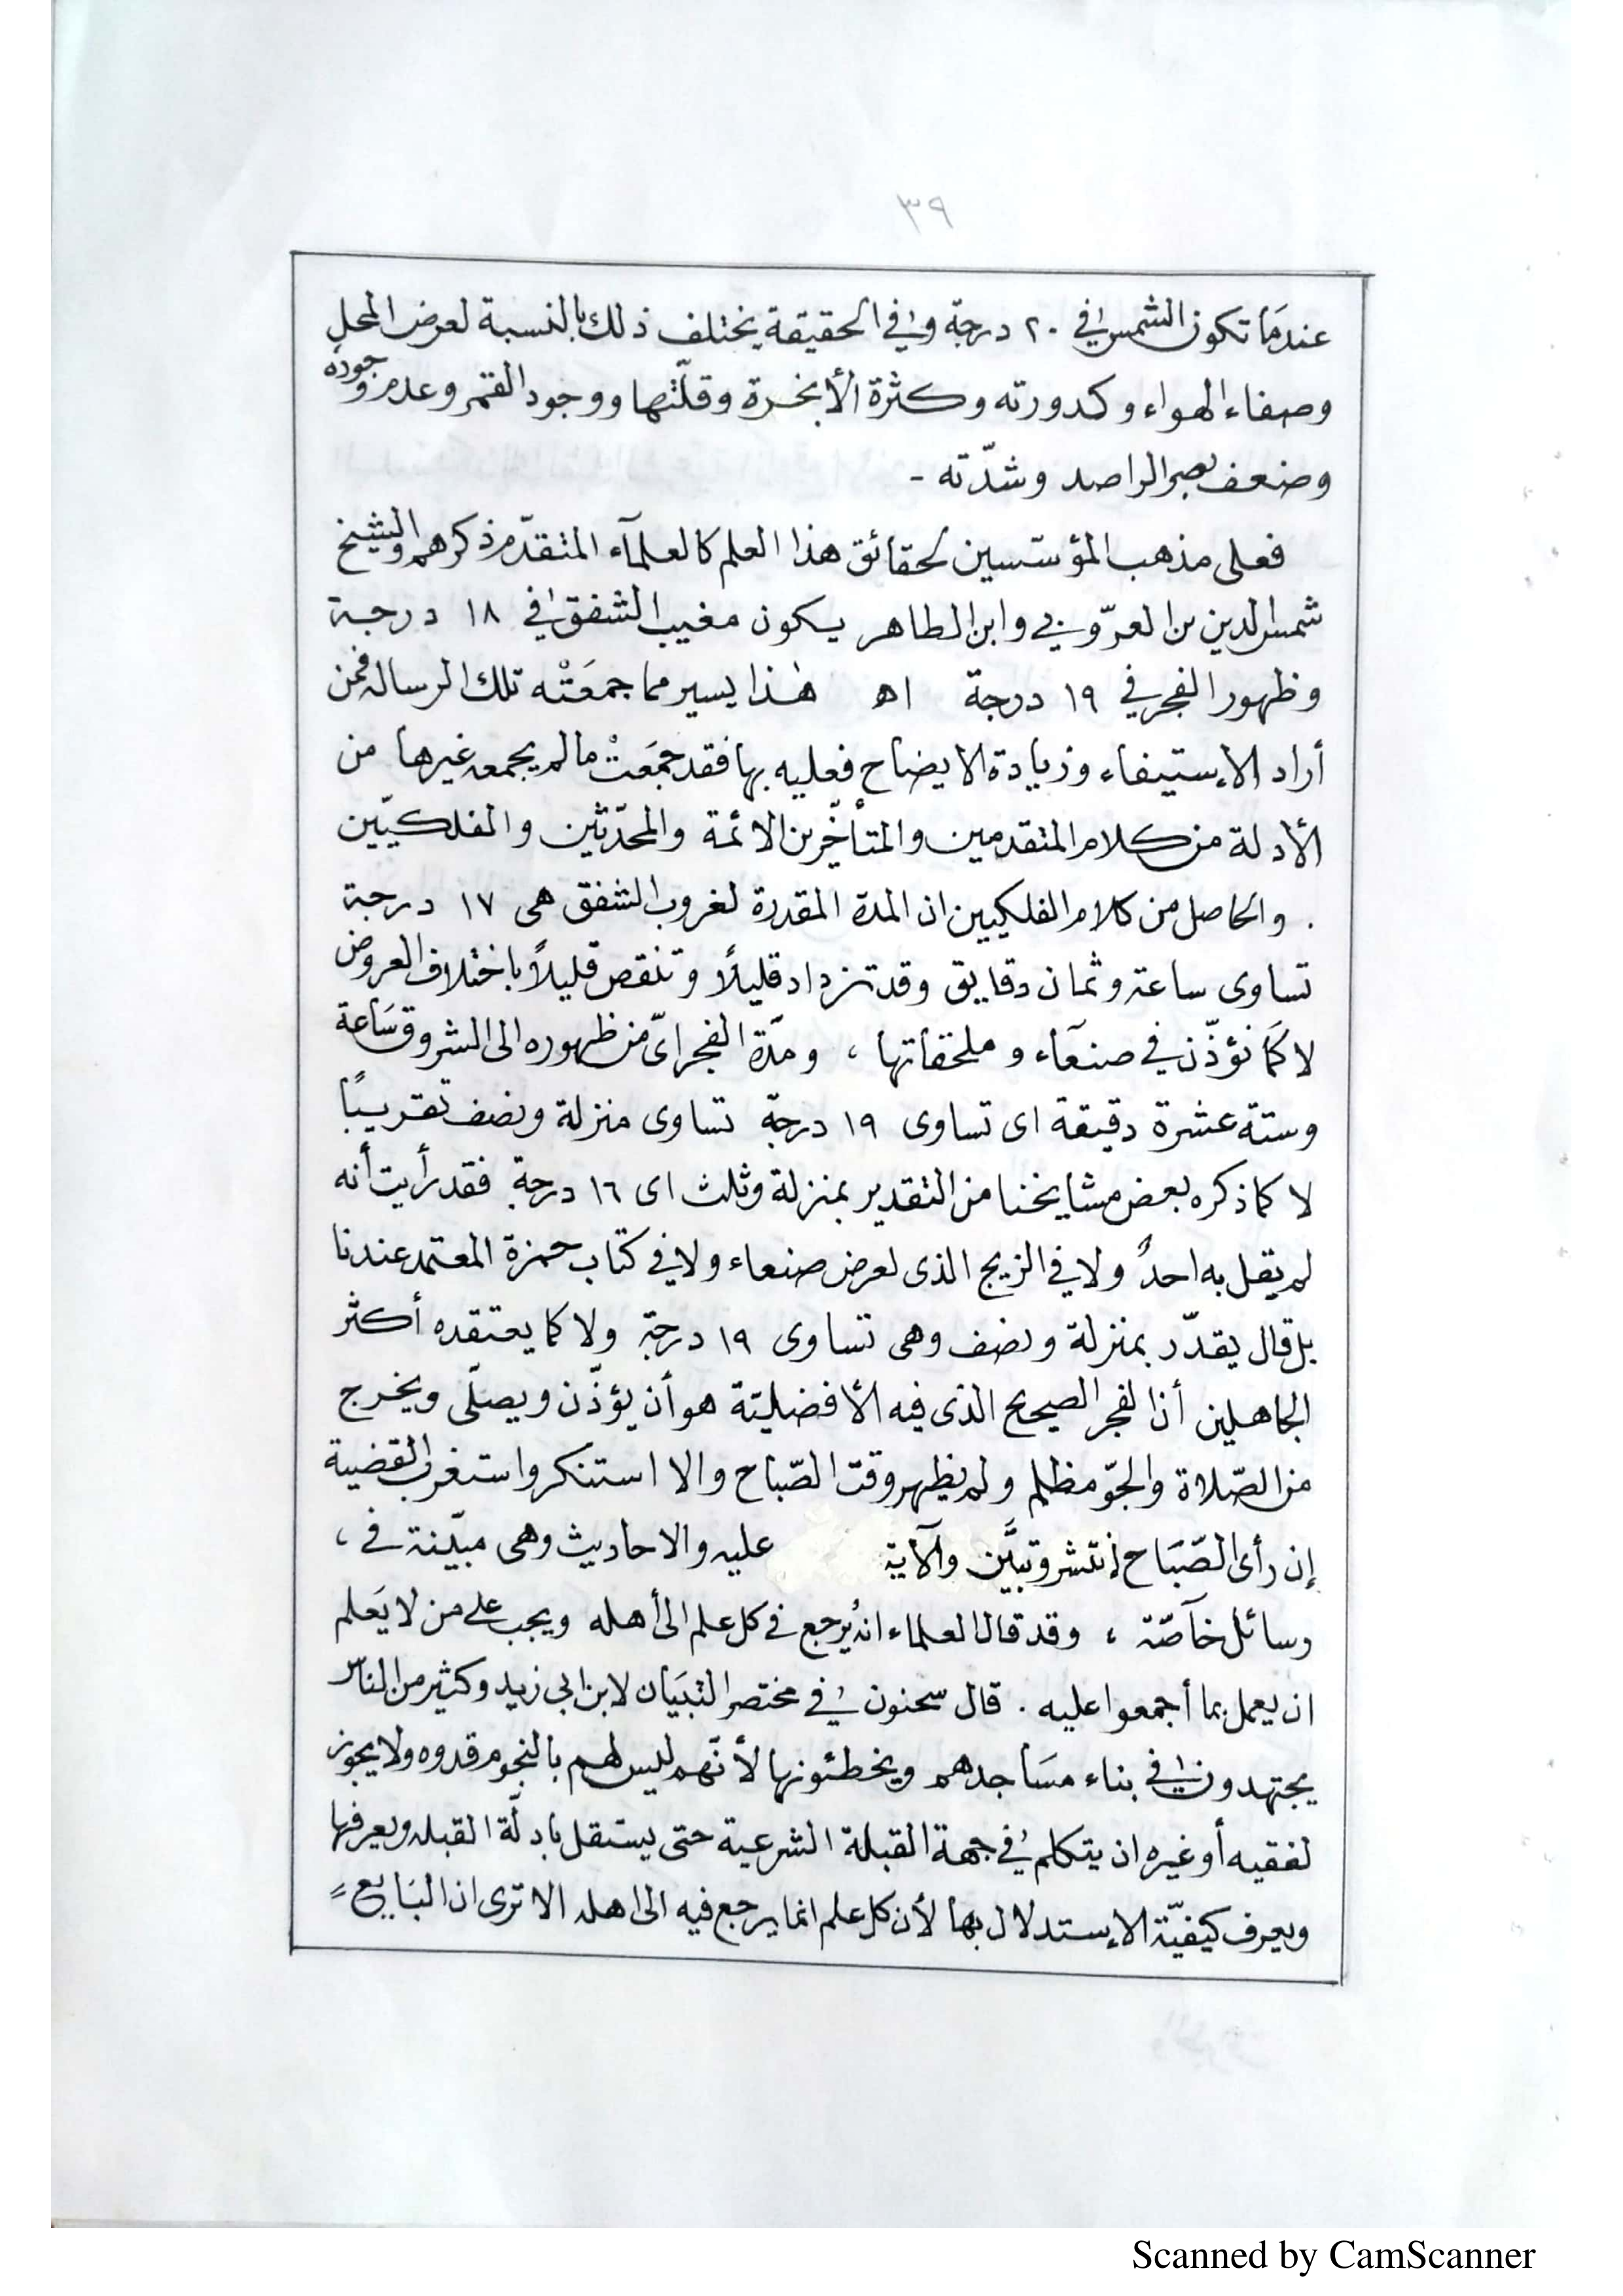 ٣٩
عندمَا تكون الشمس في ٢٠ درجة وفي الحقيقة يختلف ذلك بالنسبة لعرض المحل
وصفاء الهواء وكدورته وكثرة الأبخرة وقلّتها ووجود القمر وعدم وجوده
وضعف بصر الراصد وشدّته -
فعلى مذهب المؤسّسين لحقائق هذا العلم كالعلمآء المتقدّم ذكرهم والشيخ
شمس الدين بن العزّوبي وابن الطاهر يكون مغيب الشفق في ١٨ درجة
وظهور الفجر في ١٩ درجة اھ هٰذا يسير مما جمعَتْه تلك الرساله فمن
أراد الإستيفاء وزيادة الايضاح فعليه بها فقد جمَعتْ مالم يجمعه غيرها من
الأدلة من كلام المتقدمين والمتأخّرين الائمة والمحدّثين والفلكيّين
. والحاصل من كلام الفلكيين ان المدة المقدرة لغروب الشفق هى ١٧ درجة
تساوى ساعة وثمان دقايق وقد تزداد قليلاً وتنقص قليلاً باختلاف العروض
لا كمَا نؤذّن في صنعَآء وملحقاتها ، ومدّة الفجر اىّ من ظهوره الى الشروق سَاعة
وستة عشرة دقيقة اى تساوى ١٩ درجة تساوى منزلة ونصف تقريبًا
لا كما ذكره بعض مشايخنا من التقدير بمنزلة وثلث اى ١٦ درجة فقد رأيت أنه
لم يقل به احدٌ ولا في الزيج الذى لعرض صنعاء ولا في كتاب حمزة المعتمد عندنا
بل قال يقدّر بمنزلة ونصف وهى تساوى ١٩ درجة ولا كما يعتقده أكثر
الجاهلين أن الفجر الصحيح الذى فيه الأفضليّة هو أن يؤذّن ويصلّى ويخرج
من الصّلاة والجوّ مظلم ولم يظهر وقت الصّباح والا استنكر واستغرب القضية
إن رأى الصّبَاح انتشر وتبيَّن والآية عليه والاحاديث وهى مبيّنة في ،
رسائل خآصّة ، وقد قال العلماء انه يُرجع في كل علم الى أهله ويجب على من لا يَعلم
ان يعمل بما أجمعوا عليه . قال سحنون في مختصر التبيَان لابن ابى زيد وكثير من الناس
يجتهدون في بناء مسَاجدهم ويخطئونها لأنّهم ليس لهم بالنجوم قدوه ولا يجوز
لفقيه أو غيره ان يتكلم في جهة القبلة الشرعية حتى يستقل بادلّة القبله ويعرفها
ويعرف كيفيّة الإستدلال بها لأن كل علم انما يرجع فيه الى اهله الا ترى ان البَايع =
Scanned by CamScanner